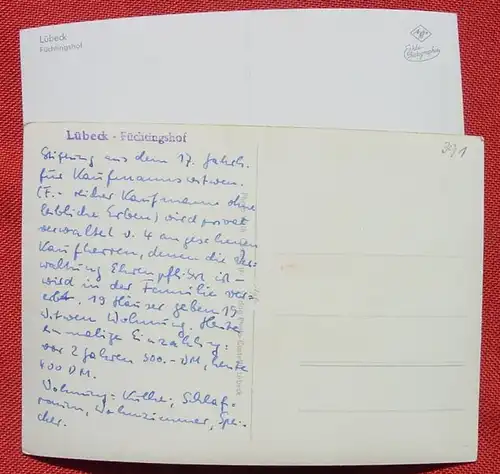 Lübeck
Füchtingshof
Agfa
Echte
Photographie
Lübeck - Füchtingshof
391
Stiftung aus dem 17. Jahrh.
für Kaufmannswitwen.
(F. - reicher Kaufmann ohne
leibliche Erben) wird privat
verwaltet v. 4 angesehenen
Kaufherren, denen die Ver-
waltung Ehrenpflicht ist -
wird in der Familie ver-
erbt. 19 Häuser geben 19
Witwen Wohnung. Heute
einmalige Einzahlung:
vor 2 Jahren 300.- DM, heute
400 DM.
Wohnung: Küche, Schlaf-
raum, Wohnzimmer, Spei-
cher.